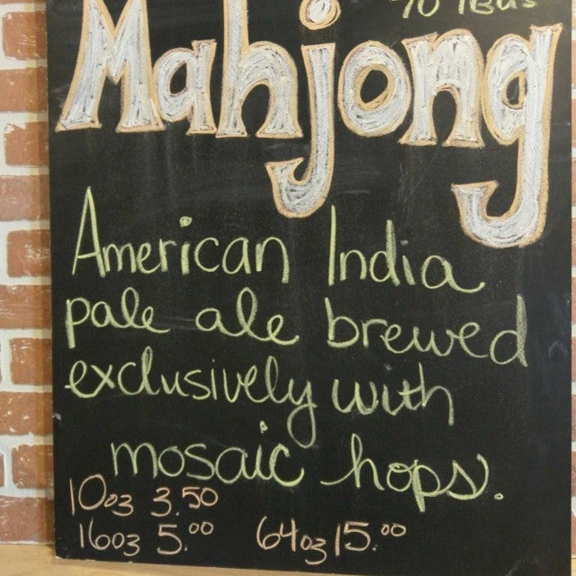 70 IBUs
Mahjong
American India
pale ale brewed
exclusively with
mosaic hops.
10oz 3.50
16oz 5.00 64oz 15.00